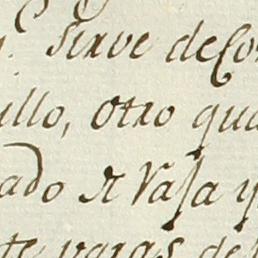 Sirve de Co
illo, otro qua
ado a Vasa y
te varas de